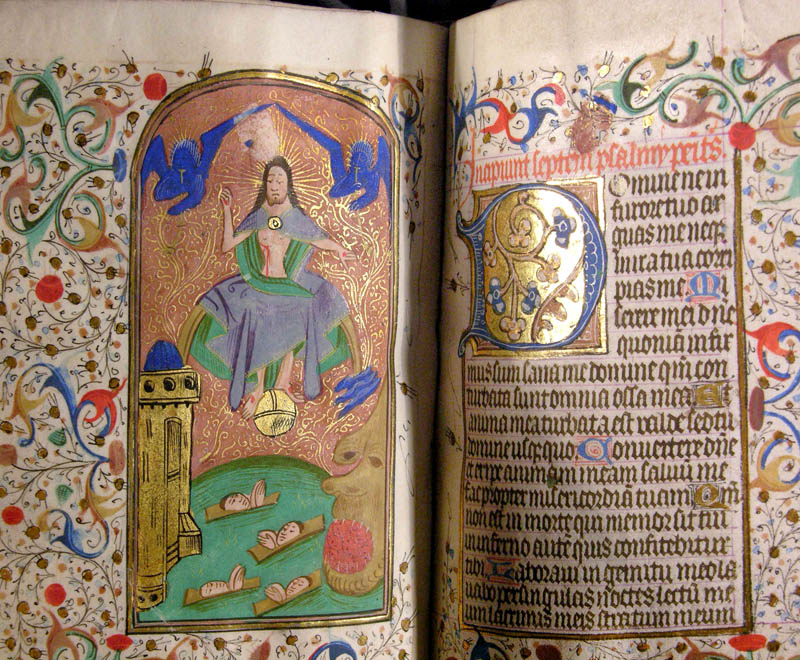 Incipiunt septem psalmy peits.
Domine ne in
furore tuo ar
guas me neqȝ
in ira tua corri
pias me. Mi
serere mei dn̄e
quoniā infir
mus sum sana me domine qm̄ con
turbata sunt omnia ossa mea Et
anima mea turbata est valde sed tu
domine usqȝ quo Convertere dn̄e
et eripe animam meam saluū me
fac propter misericordiā tuam Qm̄
non est in morte qui memor sit tui
in inferno autē quis confitebitur
tibi Laboraui in gemitu meo la
uabo per singulas noctes lectū me
um lacrimis meis stratum meum